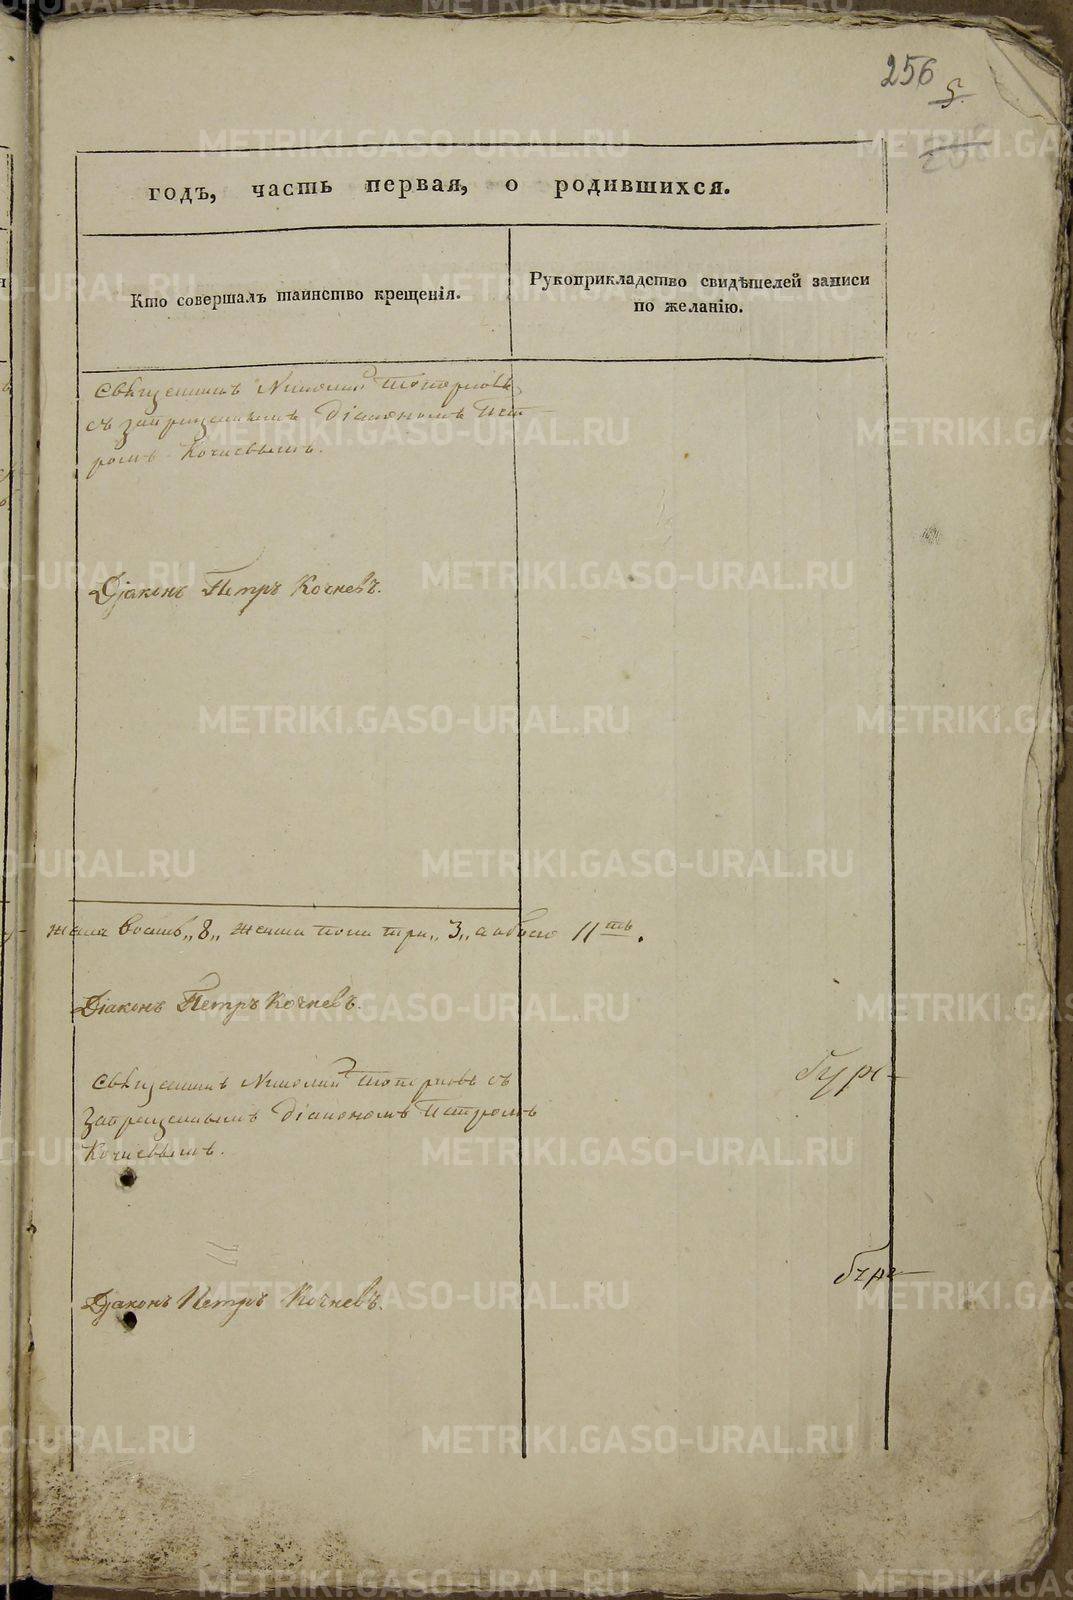 256
5.
годъ, часть первая, о родившихся.
Кто совершалъ таинство крещенія.
Рукоприкладство свидѣтелей записи
по желанію.
Священникъ Николай Топорковъ
съ запрещеннымъ діакономъ Пет-
ромъ Кочневымъ.
Діаконъ Петръ Кочневъ.
восмь „8„ женска пола три „3„ а обоего 11ть.
Діаконъ Петръ Кочневъ.
Священникъ Николай Топорковъ съ
запрещеннымъ діакономъ Петромъ
Кочневымъ.
Діаконъ Петръ Кочневъ.
METRIKI.GASO-URAL.RU